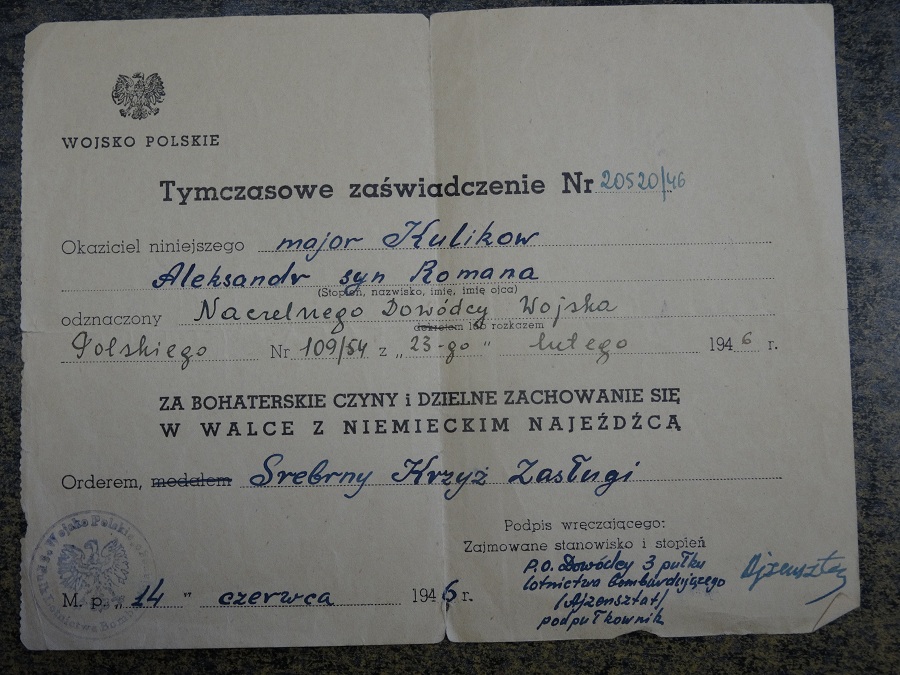 WOJSKO POLSKIE
Tymczasowe zaświadczenie Nr 20520/46
Okaziciel niniejszego major Kulikow
Aleksandr syn Romana
(Stopień, nazwisko, imię, imię ojca)
odznaczony Naczelnego Dowódcy Wojska
dekretem lub rozkazem
Polskiego Nr 109/54 z „23-go" lutego 1946 r.
ZA BOHATERSKIE CZYNY i DZIELNE ZACHOWANIE SIĘ
W WALCE Z NIEMIECKIM NAJEŹDŹCĄ
Orderem, medalem Srebrny Krzyż Zasługi
Podpis wręczającego:
Zajmowane stanowisko i stopień
p.o. Dowódcy 3 pułku
lotnictwa bombardującego
(Ajzensztat)
podpułkownik
M. p. „14" czerwca 1946 r.